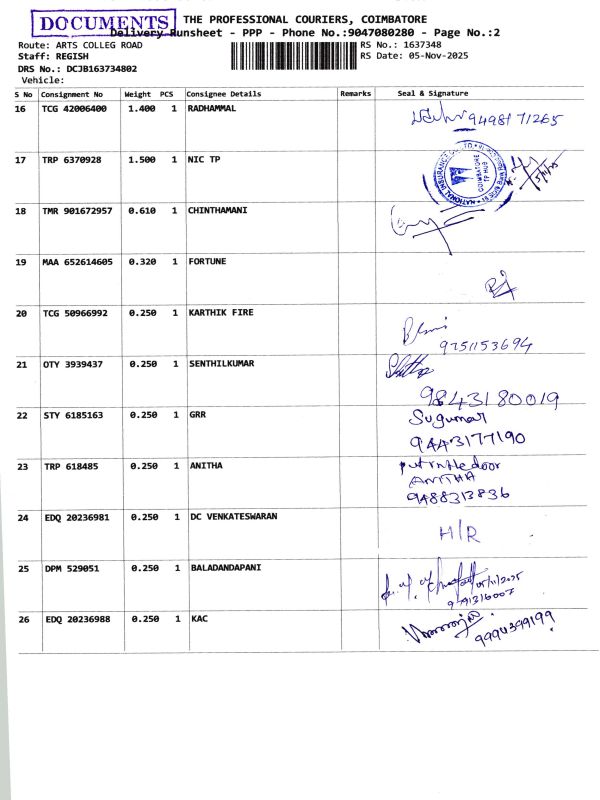 DOCUMENTS
THE PROFESSIONAL COURIERS, COIMBATORE
Delivery Runsheet - PPP - Phone No.:9047080280 - Page No.:2
Route: ARTS COLLEG ROAD
RS No.: 1637348
Staff: REGISH
RS Date: 05-Nov-2025
DRS No.: DCJB163734802
Vehicle:
S No Consignment No Weight PCS Consignee Details Remarks Seal & Signature
16 TCG 42006400 1.400 1 RADHAMMAL 9498171265
17 TRP 6370928 1.500 1 NIC TP
COIMBATORE
TP HUB
5/11/25
18 TMR 901672957 0.610 1 CHINTHAMANI
19 MAA 652614605 0.320 1 FORTUNE
20 TCG 50966992 0.250 1 KARTHIK FIRE
9751153694
21 OTY 3939437 0.250 1 SENTHILKUMAR
9843180019
22 STY 6185163 0.250 1 GRR Sugumar
9443177190
23 TRP 618485 0.250 1 ANITHA put in the door
ANITHA
9488313836
24 EDQ 20236981 0.250 1 DC VENKATESWARAN
H/R
25 DPM 529051 0.250 1 BALADANDAPANI 05/11/2025
26 EDQ 20236988 0.250 1 KAC
9994399199